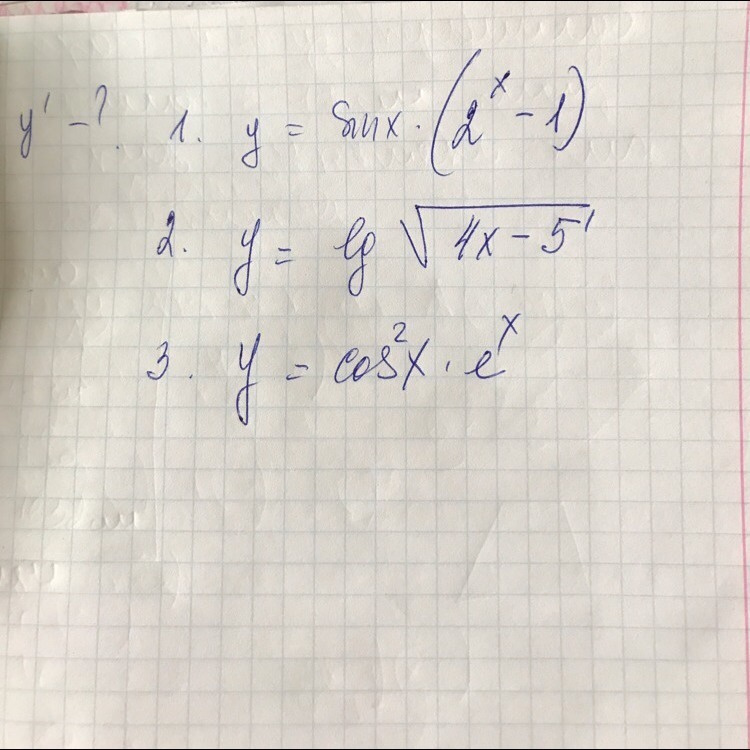 y' - ? 1. y = sinx · (2^x - 1)
2. y = lg √(4x - 5)
3. y = cos²x · e^x